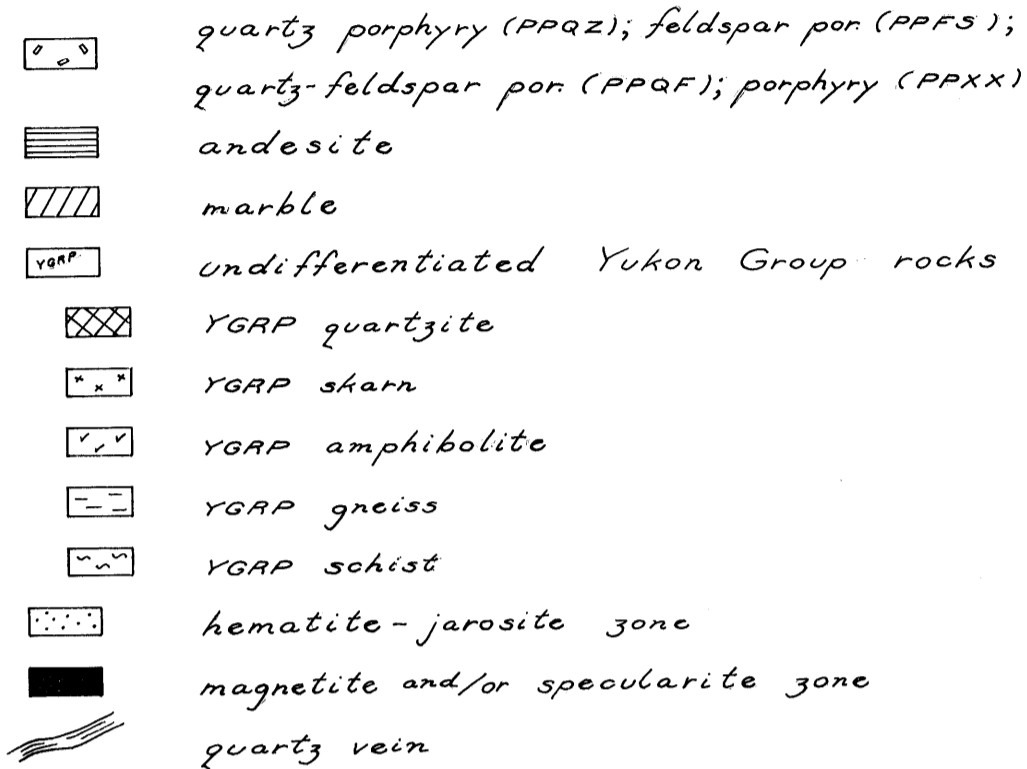 quartz porphyry (PPQZ); feldspar por. (PPFS);
quartz-feldspar por. (PPQF); porphyry (PPXX)
andesite
marble
YGRP undifferentiated Yukon Group rocks
YGRP quartzite
YGRP skarn
YGRP amphibolite
YGRP gneiss
YGRP schist
hematite-jarosite zone
magnetite and/or specularite zone
quartz vein